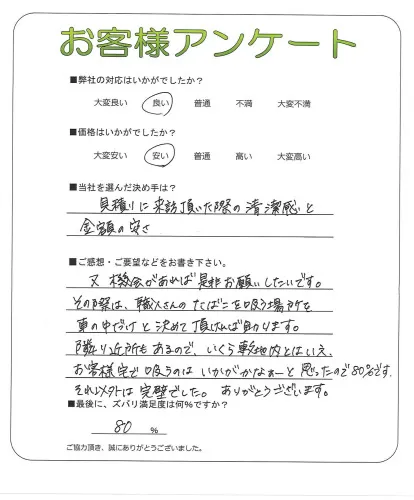 お客様アンケート
■弊社の対応はいかがでしたか？
大変良い 良い 普通 不満 大変不満
■価格はいかがでしたか？
大変安い 安い 普通 高い 大変高い
■当社を選んだ決め手は？
見積りに来訪頂いた際の清潔感と
金額の安さ
■ご感想・ご要望などをお書き下さい。
又機会があれば是非お願いしたいです。
その際は、職人さんのたばこを吸う場所を
車の中だけと決めて頂ければ助かります。
隣り近所もあるので、いくら敷地内とはいえ、
お客様宅で吸うのはいかがかなぁーと思ったので80%です。
それ以外は完璧でした。ありがとうございます。
■最後に、ズバリ満足度は何％ですか？
80 %
ご協力頂き、誠にありがとうございました。